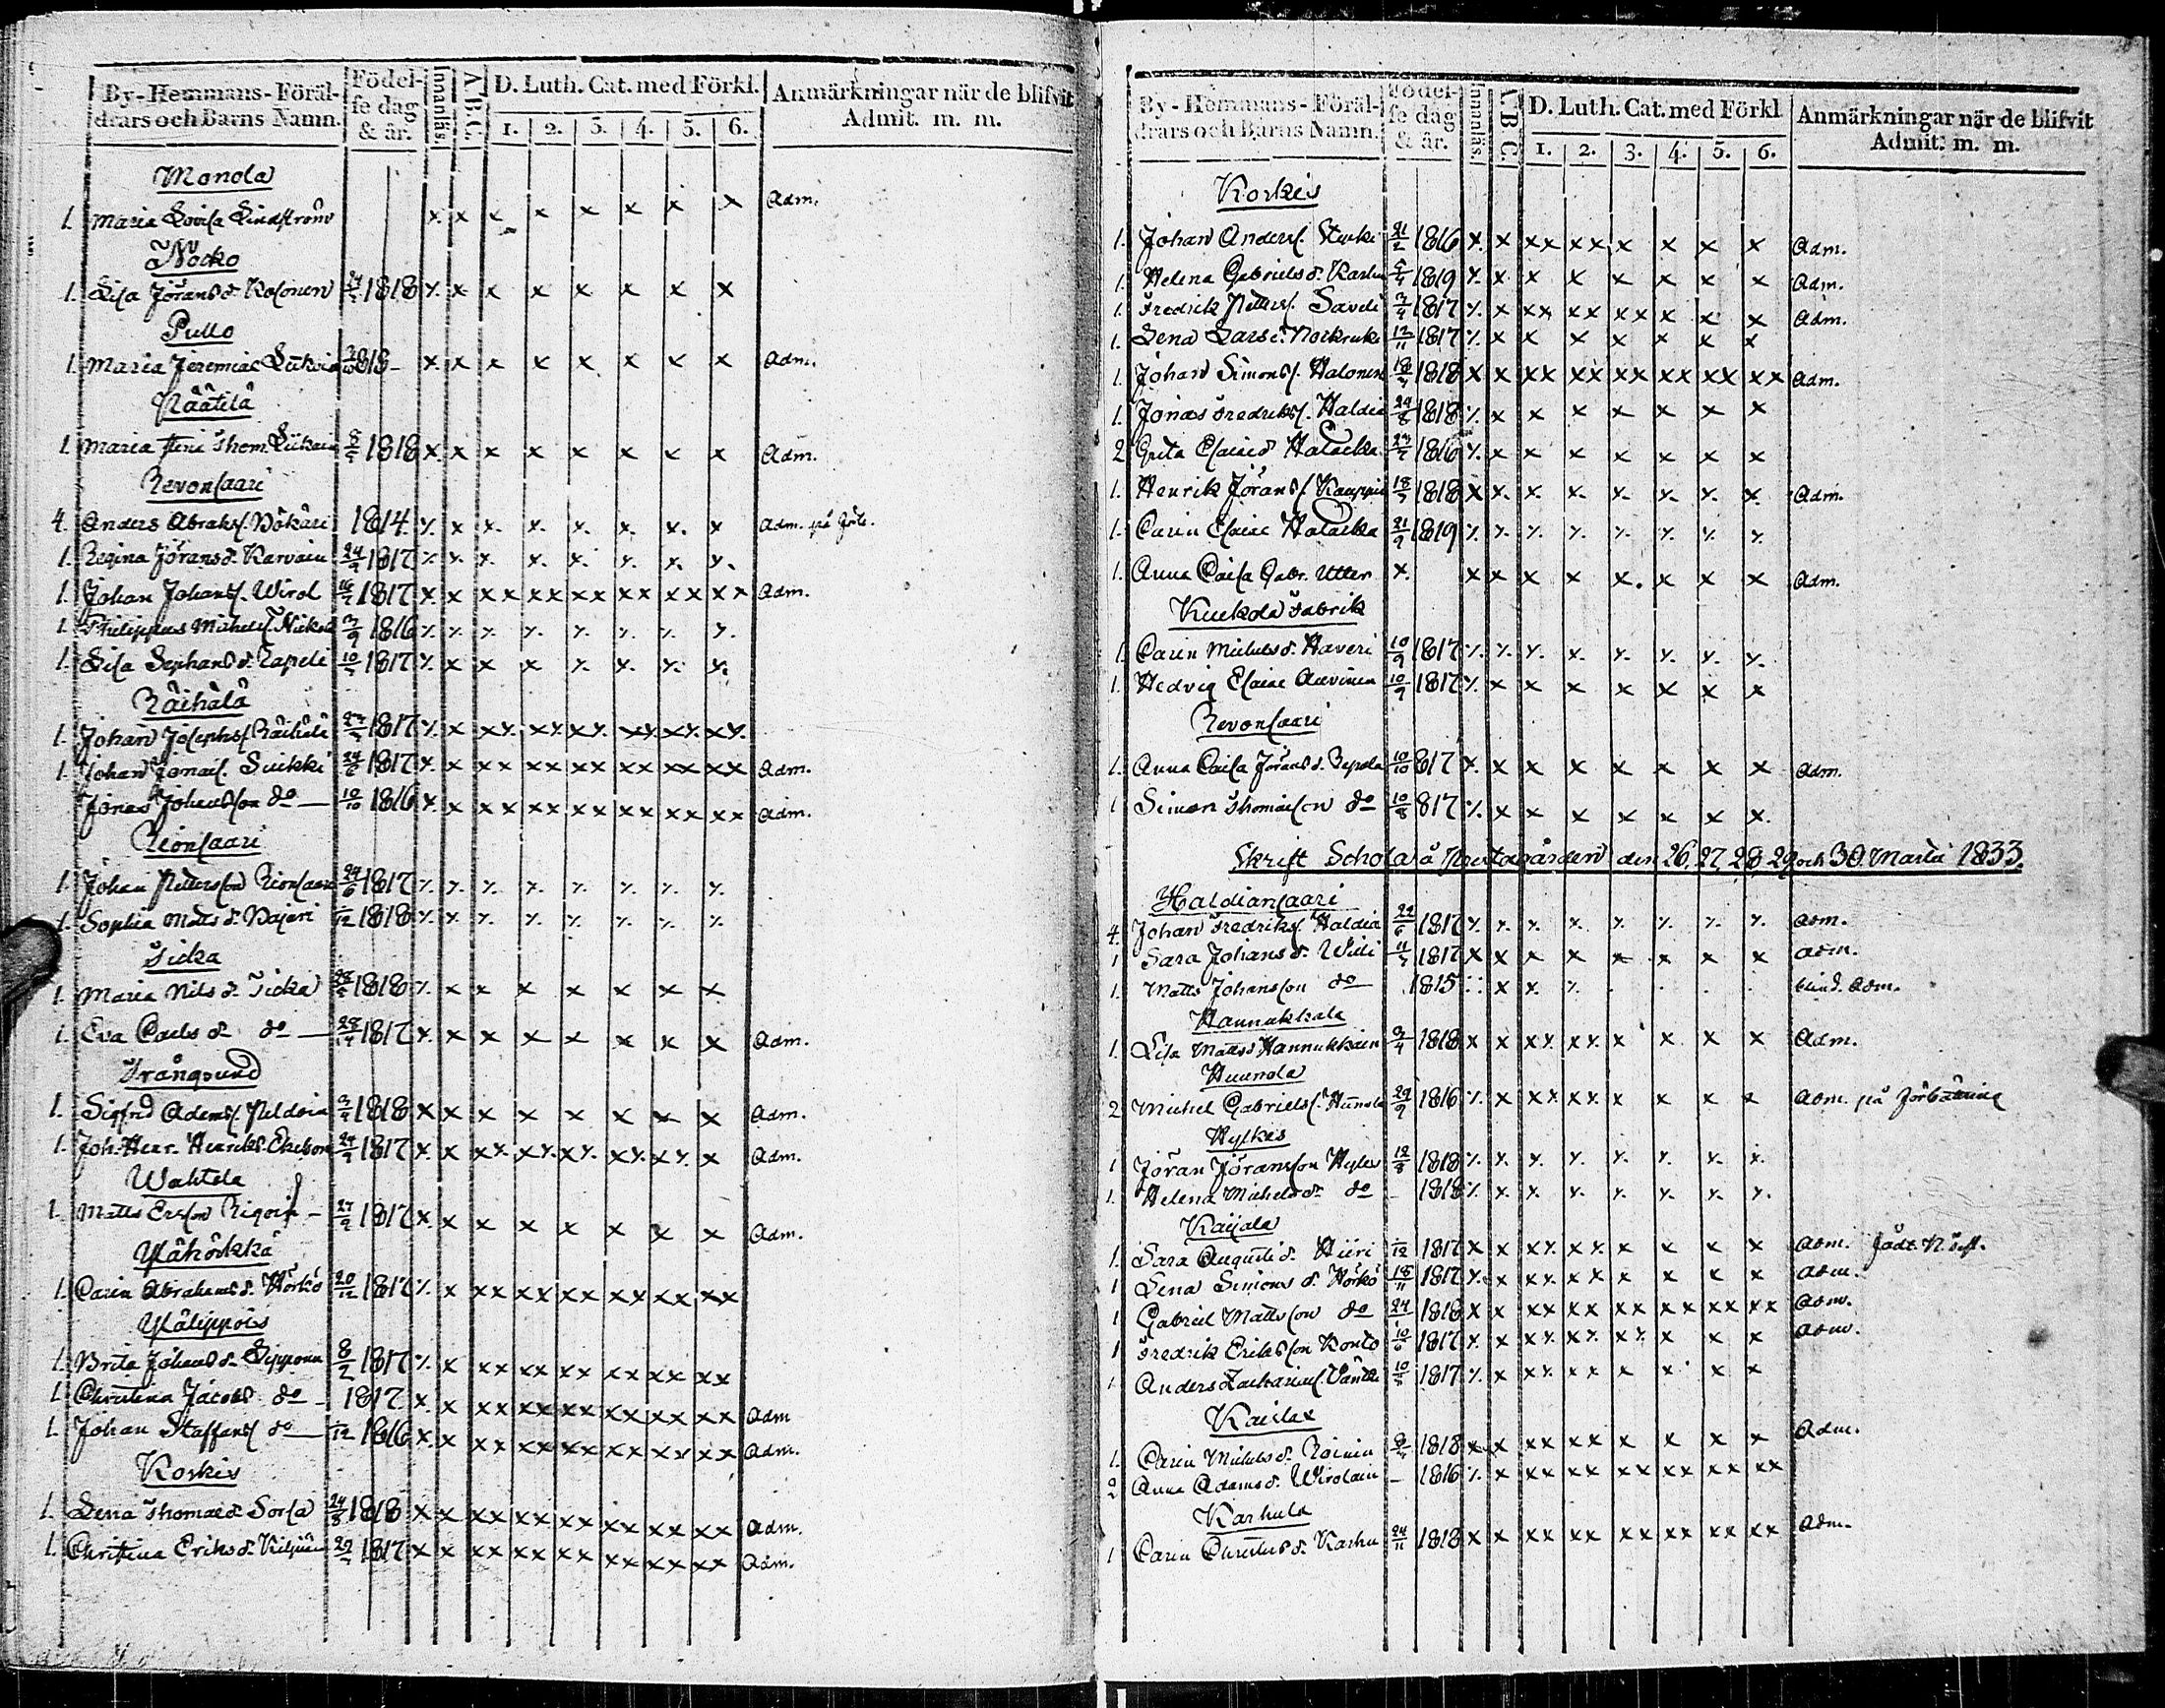 By-Hemmans-Föräl-
drars och Barns Namn.
Födel-
se dag
& år.
Innanläs.
A.B.C.
D. Luth. Cat. med Förkl.
1. 2. 3. 4. 5. 6.
Anmärkningar när de blifvit
Admit. m. m.
Monola
1. Maria Lovisa Lindström x x x x x x x x Adm.
Nocko
1. Lisa Jörans d. Kosonen 1818 x x x x x x x x
Pullo
1. Maria Jeremiae 1818 x x x x x x x x Adm.
Räätilä
1. Maria Thom. Liikain 1818 x x x x x x x x Adm.
Revonsaari
4. Anders Abrahs. Pökäri 1814 x x x x x x x x Adm. på
1. Regina Jörans d. Karvain 24/9 1817 x x x x x x x x
1. Johan Johans. Wirol 1817 x x xx xx xx xx xx xx Adm.
1. Philippus Michels. 3/9 1816 x x x x x x x x
1. Lisa Sephans d. Rapeli 1817 x x x x x x x x
Räihälä
1. Johan Josephs. Räihälä 1817 x x xx xx xx xx xx xx
1. Johan Jonais. Suikki 24/6 1817 x x xx xx xx xx xx xx Adm.
Jonas Johansson do 10/10 1816 x x xx xx xx xx xx xx Adm.
Rionsaari
1. Johan Pettersson Rionsaar 24/6 1817 x x x x x x x x
1. Sophia Matts d. Pajari 12 1818 x x x x x x x x
Ticka
1. Maria Nils d. Ticka 1818 x x x x x x x x
1. Eva Carls d. do 1817 x x x x x x x x Adm.
Trångsund
1. Sigfrid Adams. Peldoin 1818 x x x x x x x x Adm.
1. Joh. Henr. Henriks. 1817 x x xx xx xx xx xx x Adm.
Wahtola
1. Matts Ersson Rigoin 27/9 1817 x x x x x x x x Adm.
Ylähörkkä
1. Carin Abrahams d. Hörkö 20/12 1817 x x xx xx xx xx xx xx
Ylälippois
1. Brita Johans d. Lipponen 8/2 1817 x x xx xx xx xx xx xx
1. Christina Jacobs do 1817 x x xx xx xx xx xx xx Adm
1. Johan Staffans do 12 1816 x x xx xx xx xx xx xx Adm.
Korkis
1. Lena Thomae d. Sorsa 24/8 1818 x x xx xx xx xx xx xx Adm.
1. Christina Eriks d. 1817 x x xx xx xx xx xx xx Adm.
By-Hemmans-Föräl-
drars och Barns Namn.
Födel-
se dag
& år.
Innanläs.
A.B.C.
D. Luth. Cat. med Förkl
1. 2. 3. 4. 5. 6.
Anmärkningar när de blifvit
Admit. m. m.
Korkis
1. Johan Anders. 21/2 1816 x x xx xx x x x x Adm.
1. Helena Gabriels d. Karhu 1819 x x x x x x x x Adm.
1. Fredrik Petters. Savela 1817 x x xx xx xx x x x Adm.
1. Lena Lars d. 12/11 1817 x x x x x x x x
1. Johan Simons. Halonen 1818 x x xx xx xx xx xx xx Adm.
1. Jonas Fredriks. Haldia 24/8 1818 x x x x x x x x
2 Greta Esaiae d. Hatacka 1816 x x x x x x x x
1. Henrik Jörans. Kauppi 1818 x x x x x x x x Adm.
1. Carin Esaiae Hatacka 21/9 1819 x x x x x x x x
1. Anna Caisa Gabr. Utter x x x x x x x x x Adm.
Kuckola Fabrik
1. Carin Michels d. Haveri 10/9 1817 x x x x x x x x
1. Hedvig Esaiae Auvinen 10/9 1817 x x x x x x x x
Revonsaari
1. Anna Caisa Jörans d. Repola 10/10 817 x x x x x x x x Adm.
1 Simon Thomasson do 10/8 817 x x x x x x x x
Skrift Schola å Prestagården den 26. 27. 28 29 och 30. Martii 1833.
Haldiansaari
4. Johan Fredriks. Haldia 22/6 1817 x x x x x x x x Adm.
1 Sara Johans d. 1817 x x x x x x x x Adm.
1. Matts Johansson do 1815 x x x blind. Adm.
Hannukkala
1. Lisa Matts d. Hannukkain 1818 x x xx xx x x x x Adm.
Huunola
2 Michel Gabriels. 29/9 1816 x x xx xx x x x x Adm. på förbättring
Hylkis
1 Jöran Jöransson 12/8 1818 x x x x x x x x
1. Helena Michels d. do - 1818 x x x x x x x x
Kaijala
1. Sara Augusti d. Hiiri 12 1817 x x xx xx x x x x Adm.
1 Lena Simons d. Hörkö 18/11 1817 x x xx xx x x x x Adm.
1 Gabriel Mattsson do 24/1 1818 x x xx xx xx xx xx xx Adm.
1 Fredrik Eriksson Kontto 10/6 1817 x x xx xx xx x x x Adm.
1 Anders Zachariae 1817 x x xx xx x x x x
Kaislax
1. Carin Michels d. 1818 x x xx xx x x x x Adm.
2 Anna Adams d. Wirolain - 1816 x x xx xx xx xx xx xx
Karhula
1 Carin Christers d. Karhu 24/11 1818 x x xx xx xx xx xx xx Adm.